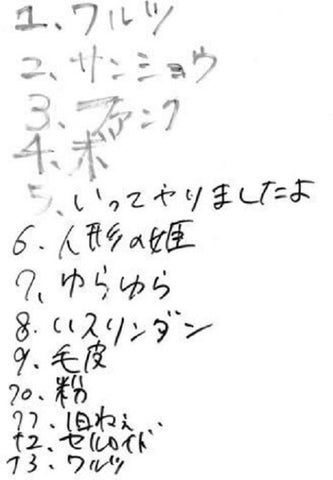 1、ワルツ
2、サンショウ
3、ファンク
4、ボ
5、いってやりましたよ
6、人形の姫
7、ゆらゆら
8、いスリンダン
9、毛皮
10、粉
11、旧ねぇ..
12、セルロイド
13、ワルツ